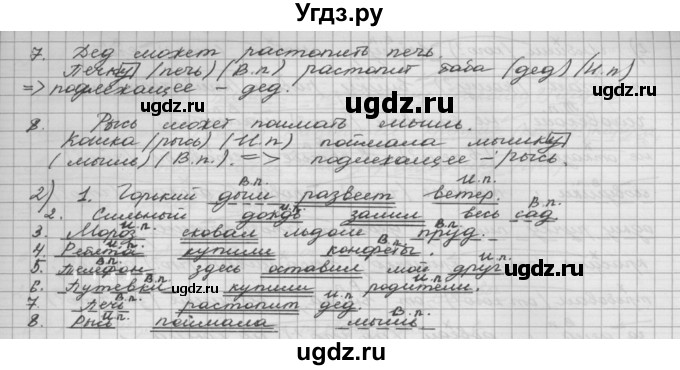 Угдз.ру
7. Дед может растопить печь.
Печку (печь) (В.п) растопит баба (дед) (И.п)
=> подлежащее – дед.
8. Рысь может поймать мышь.
Кошка (рысь) (И.п) поймала мышку
(мышь) (В.п.). => подлежащее – рысь.
В.п. И.п.
2) 1. Горький дым развеет ветер.
И.п. В.п.
2. Сильный дождь залил весь сад
И.п. В.п.
3. Мороз сковал льдом пруд.
И.п. В.п.
4. Ребята купили конфеты.
В.п. И.п.
5. Телефон здесь оставил мой друг.
В.п. И.п.
6. Путевки купили родители.
В.п. И.п.
7. Печь растопит дед.
И.п. В.п.
8. Рысь поймала мышь
ugdz.ru
ugdz.ru
ugdz.ru
ugdz.ru
ugdz.ru
ugdz.ru
ugdz.ru
ugdz.ru
ugdz.ru